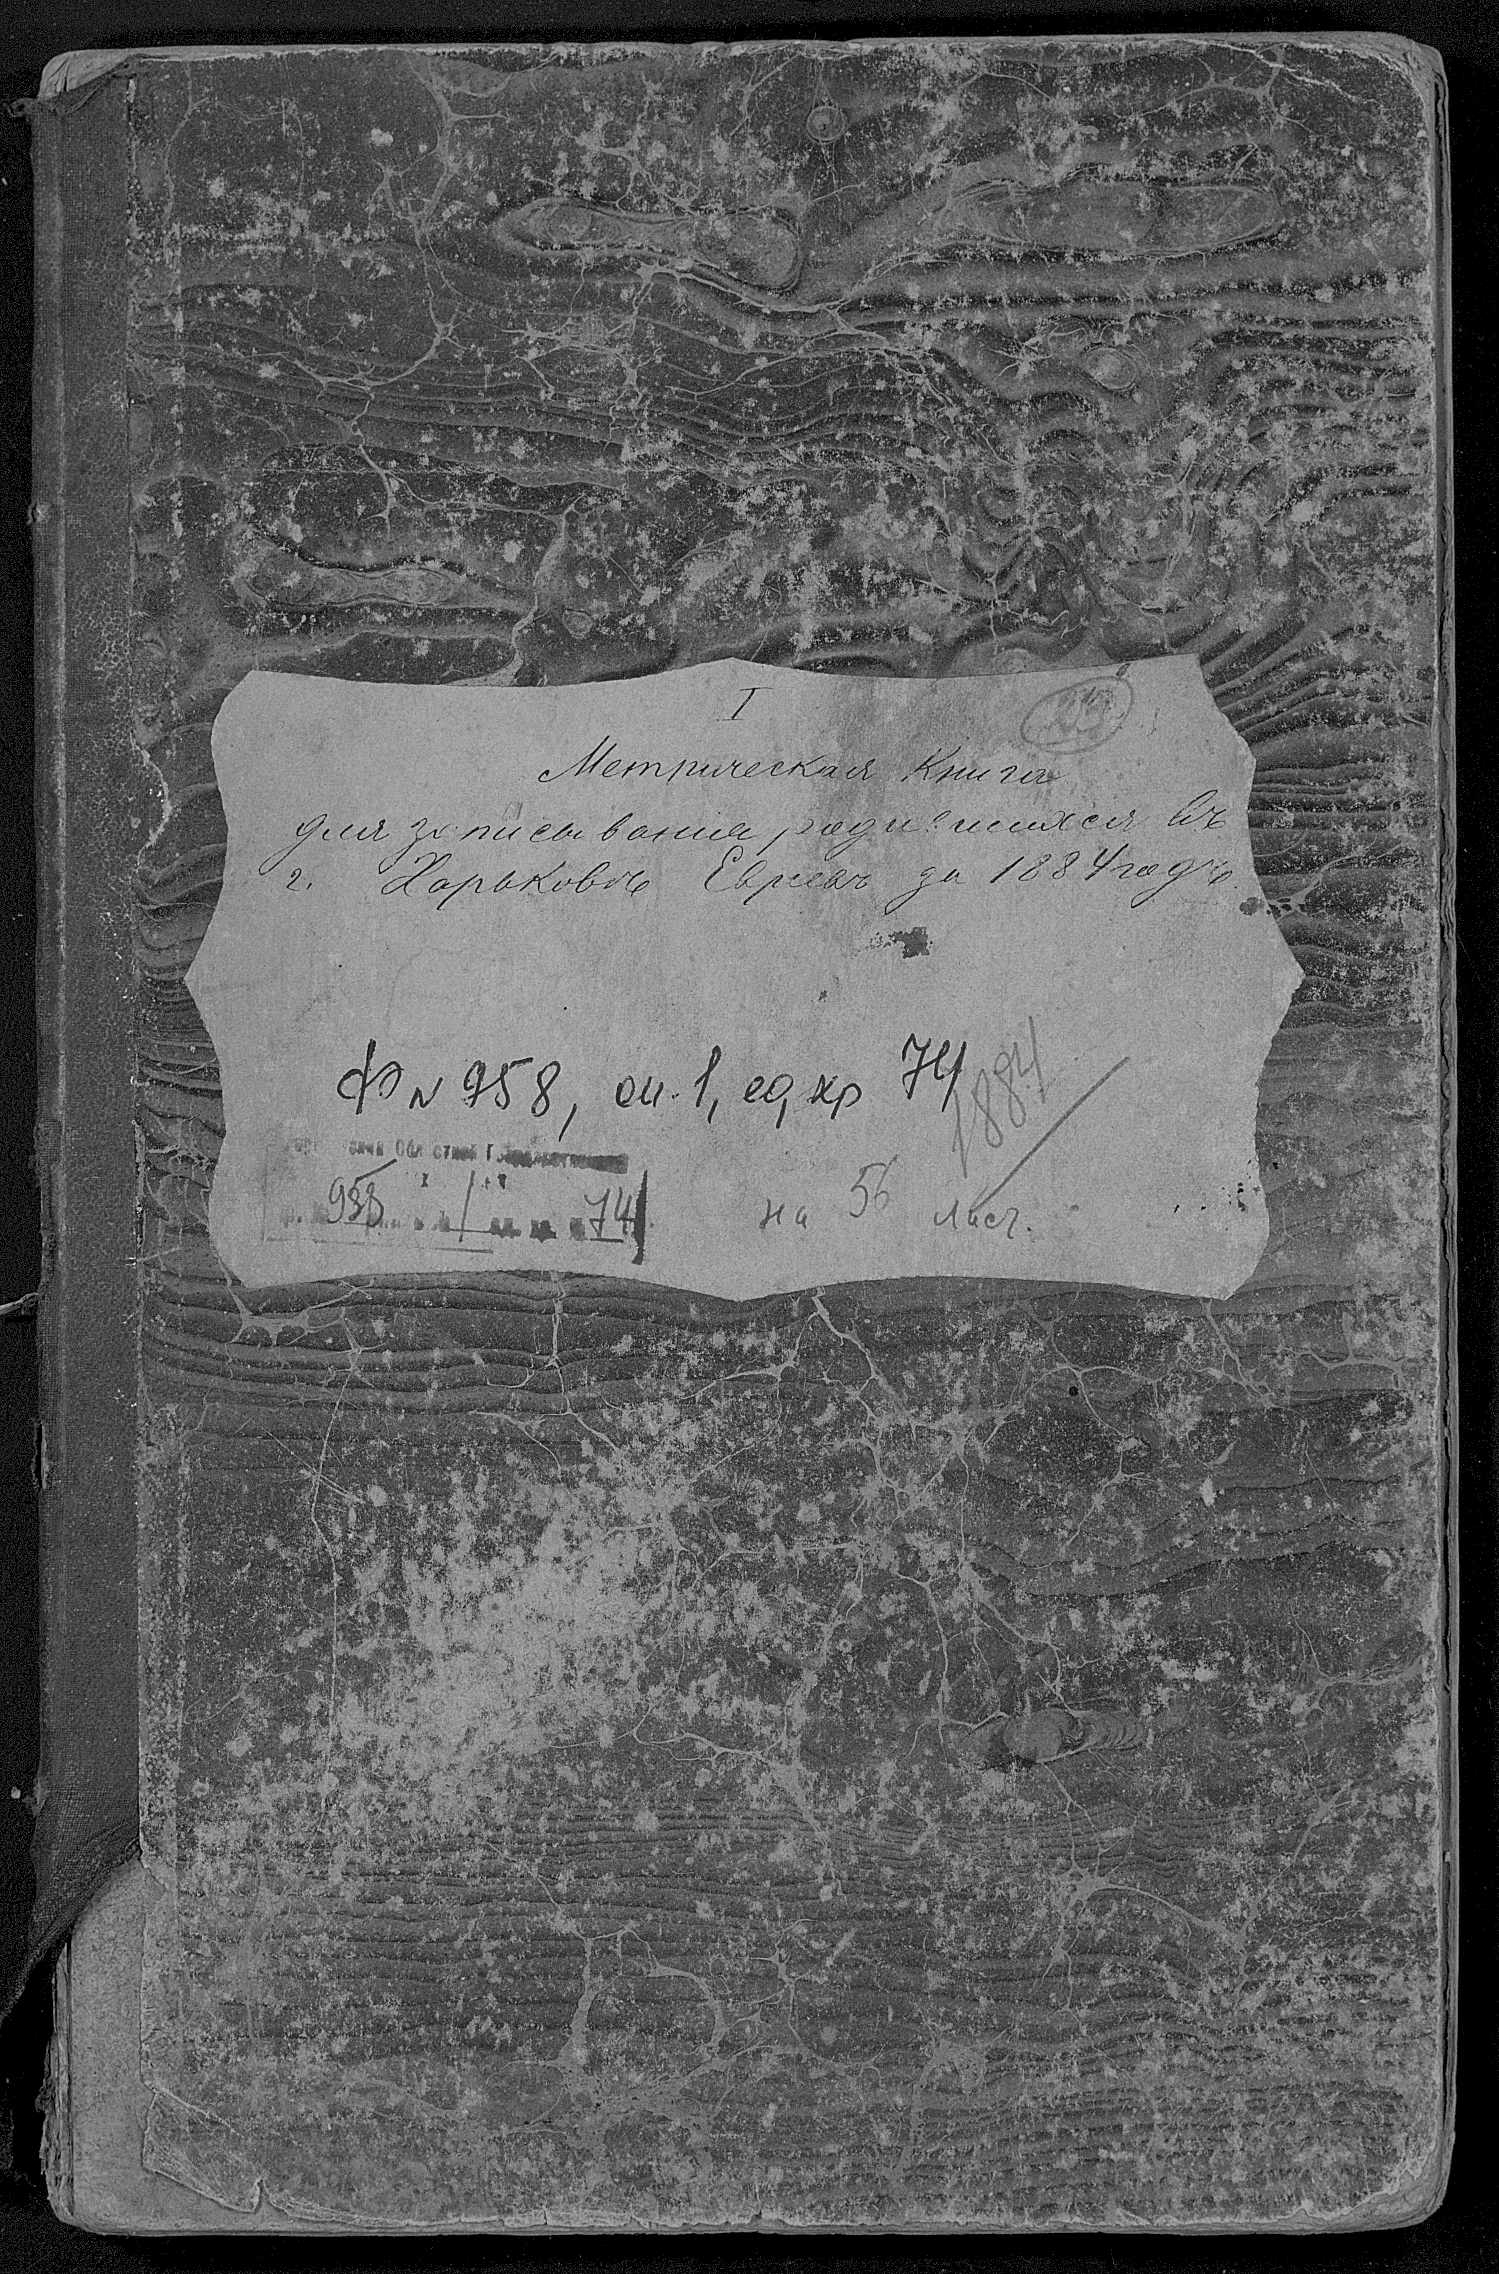 I
23
Метрическая Книга
для записыванія родившихся въ
г. Харьковѣ Евреевъ за 1884 годъ
Ф N 958, оп. 1, ед, хр 74
1884
Областной Государственный
958 1 74
на 56 лист.